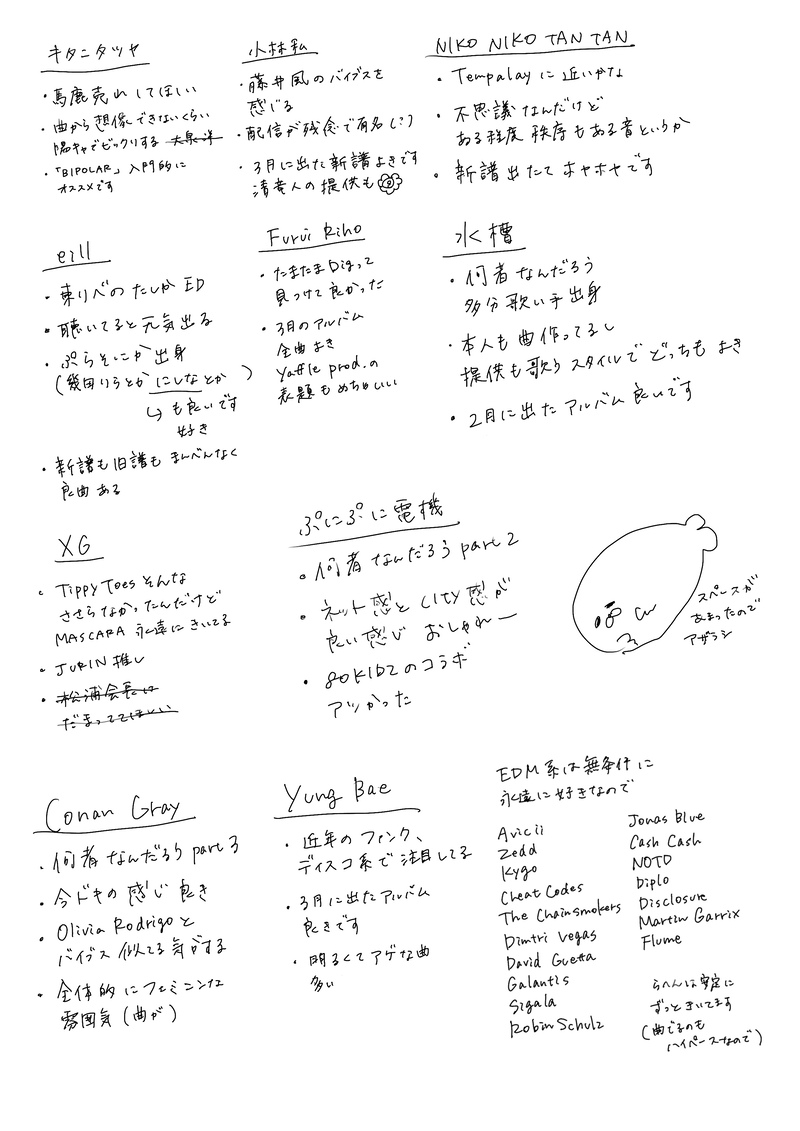 キタニタツヤ
・馬鹿売れしてほしい
・曲から想像できないくらい
陽キャでビックリする 大泉洋
・「BIPOLAR」入門的に
オススメです
小林私
・藤井風のバイブスを
感じる
・配信が残念で有名(?)
・3月に出た新譜よきです
清竜人の提供も
NIKO NIKO TAN TAN
・Tempalayに近いかな
・不思議なんだけど
ある程度秩序もある音というか
・新譜出たてホヤホヤです
eill
・東リベのたしかED
・聴いてると元気出る
・ぷらそにか出身
(幾田りらとかにしなとか)
↳も良いです
好き
・新譜も旧譜もまんべんなく
良曲ある
Furui Riho
・たまたまDigって
見つけて良かった
・3月のアルバム
全曲よき
Yaffle prod.の
表題もめちゃいい
水槽
・何者なんだろう
多分歌い手出身
・本人も曲作ってるし
提供も歌うスタイルでどっちもよき
・2月に出たアルバム良いです
XG
・Tippy Toesそんな
ささらなかったんだけど
MASCARA永遠にきいてる
・JURIN推し
・松浦会長は
だまっててほしい
ぷにぷに電機
・何者なんだろうpart2
・ネット感とCITY感が
良い感じ おしゃれー
・80KIDZのコラボ
アツかった
スペースが
あまったので
アザラシ
Conan Gray
・何者なんだろうpart3
・今ドキの感じ良き
・Olivia Rodrigoと
バイブス似てる気がする
・全体的にフェミニンな
雰囲気(曲が)
Yung Bae
・近年のファンク、
ディスコ系で注目してる
・3月に出たアルバム
良きです
・明るくてアゲな曲
多い
EDM系は無条件に
永遠に好きなので
Avicii
Zedd
Kygo
Cheat Codes
The Chainsmokers
Dimtri Vegas
David Guetta
Galantis
Sigala
Robin Schulz
Jonas Blue
Cash Cash
NOTD
Diplo
Disclosure
Martin Garrix
Flume
らへんは安定に
ずっときいてます
(曲でるのも
ハイペースなので)